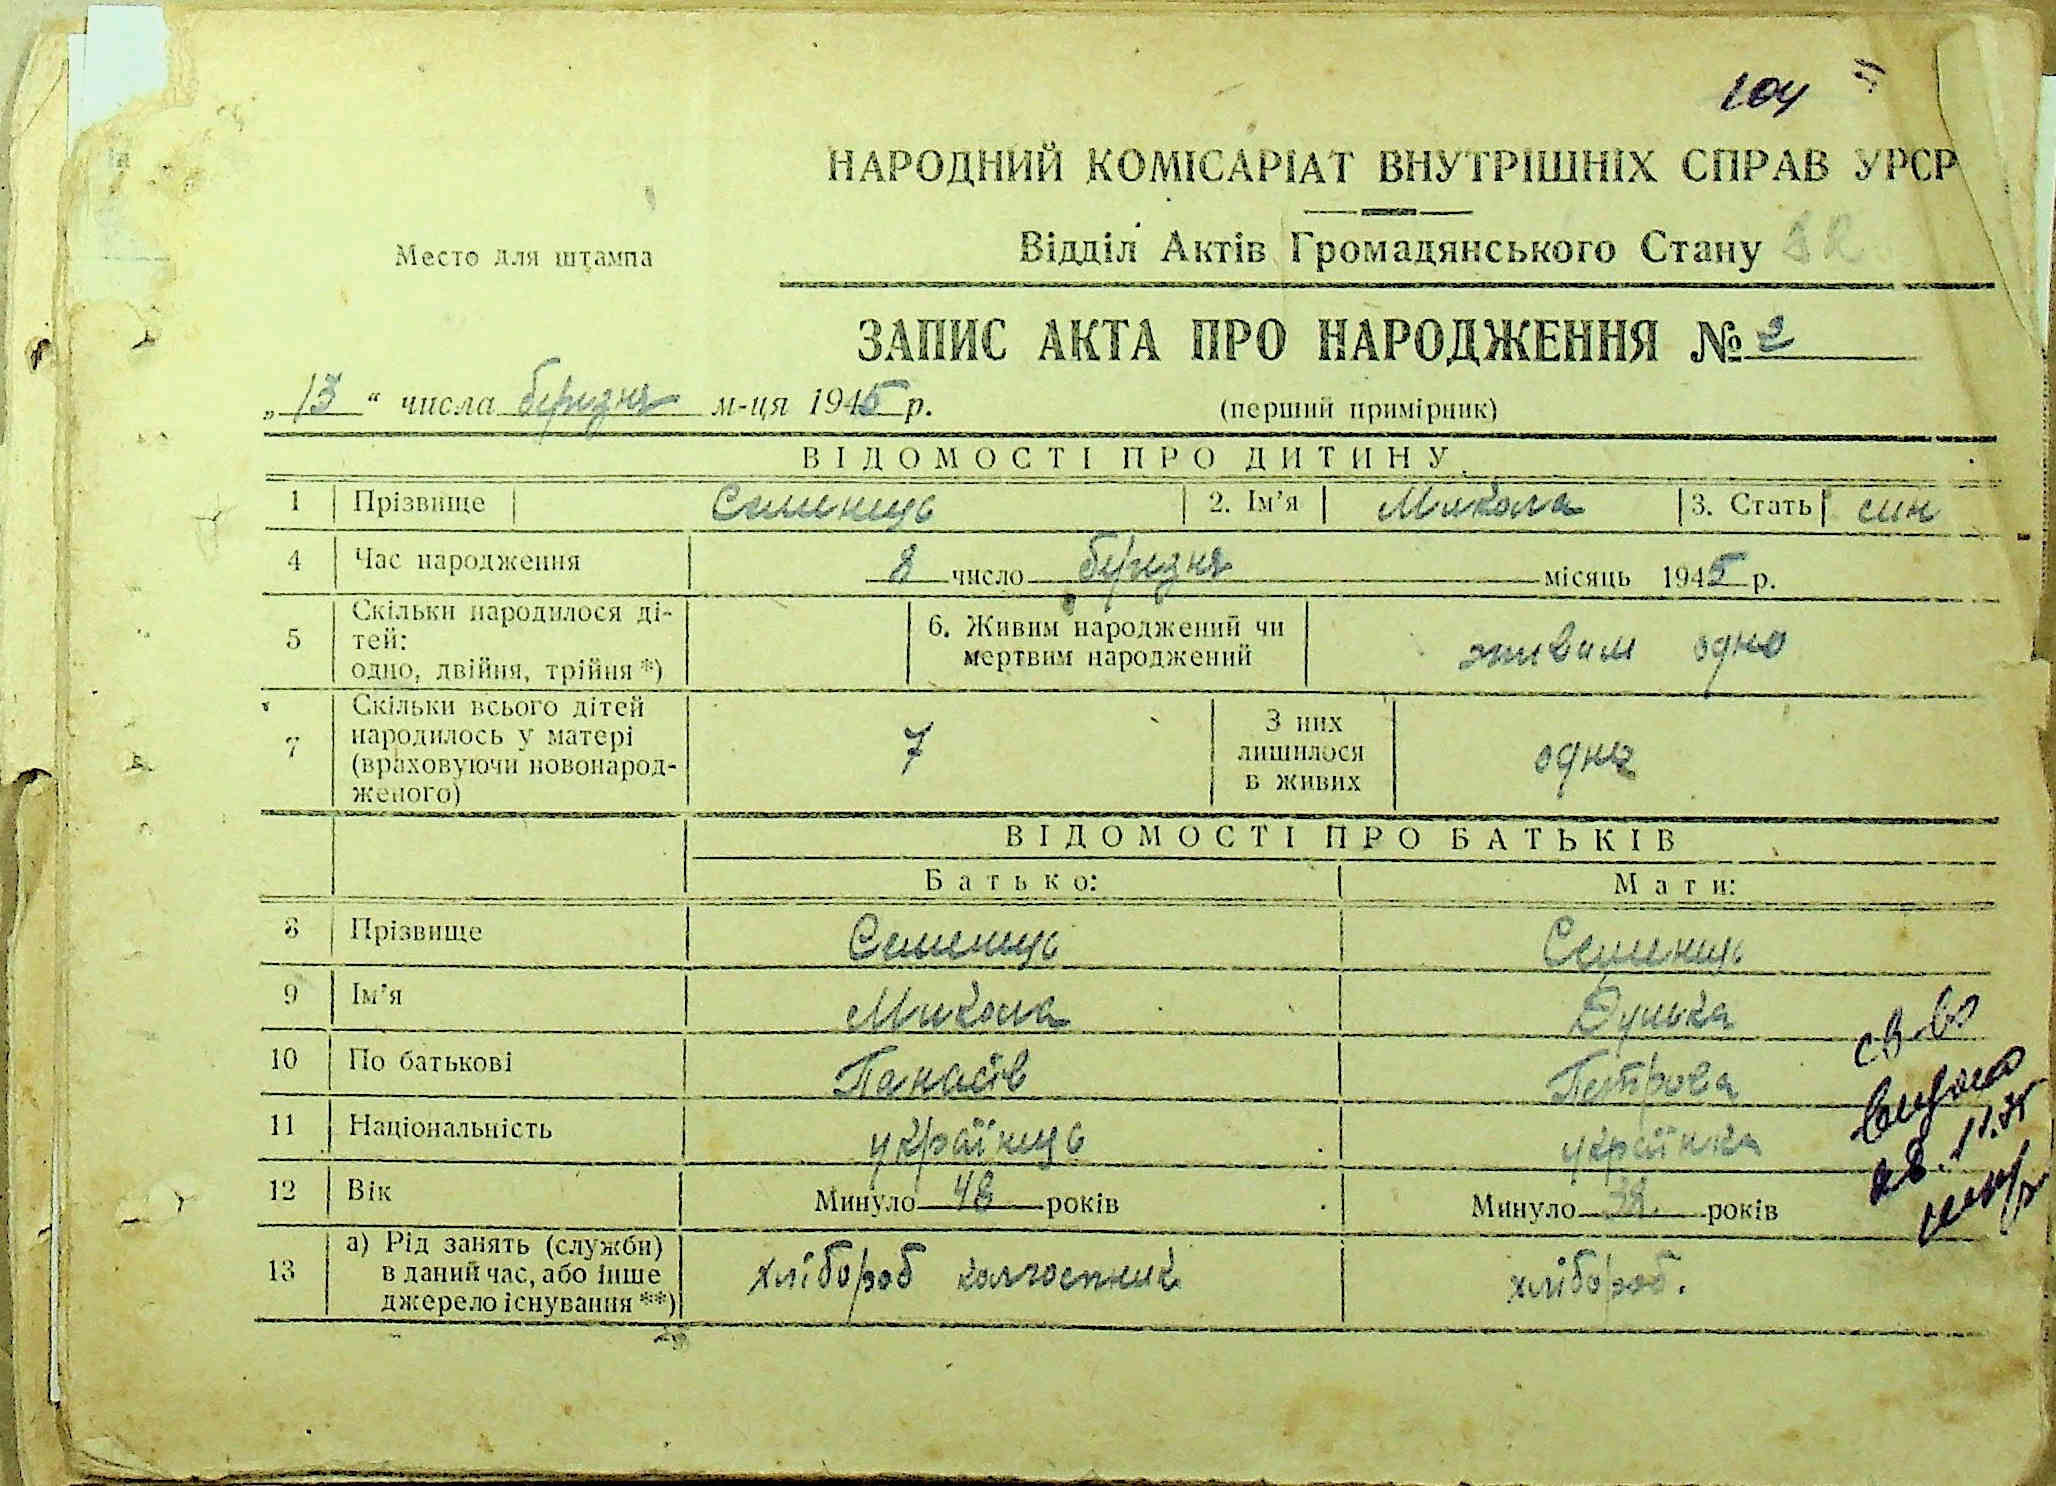 104
НАРОДНИЙ КОМІСАРІАТ ВНУТРІШНІХ СПРАВ УРСР
Место для штампа
Відділ Актів Громадянського Стану
ЗАПИС АКТА ПРО НАРОДЖЕННЯ № 2
„ 13 “ числа березня м-ця 1945 р.
(перший примірник)
ВІДОМОСТІ ПРО ДИТИНУ
1 Прізвище Семенець 2. Ім'я Микола 3. Стать син
4 Час народження 8 число березня місяць 1945 р.
5 Скільки народилося ді-
тей:
одно, двійня, трійня *)
6. Живим народжений чи
мертвим народжений
живим одно
7 Скільки всього дітей
народилось у матері
(враховуючи новонарод-
женого)
7
З них
лишилося
в живих
одна
ВІДОМОСТІ ПРО БАТЬКІВ
Батько: Мати:
8 Прізвище Семенець Семенець
9 Ім'я Микола Дунька
10 По батькові Панасів Петрова
11 Національність українець українка
12 Вік Минуло 48 років Минуло 38 років
13 а) Рід занять (служби)
в даний час, або інше
джерело існування **)
хлібороб колгоспник хлібороб.
св-во